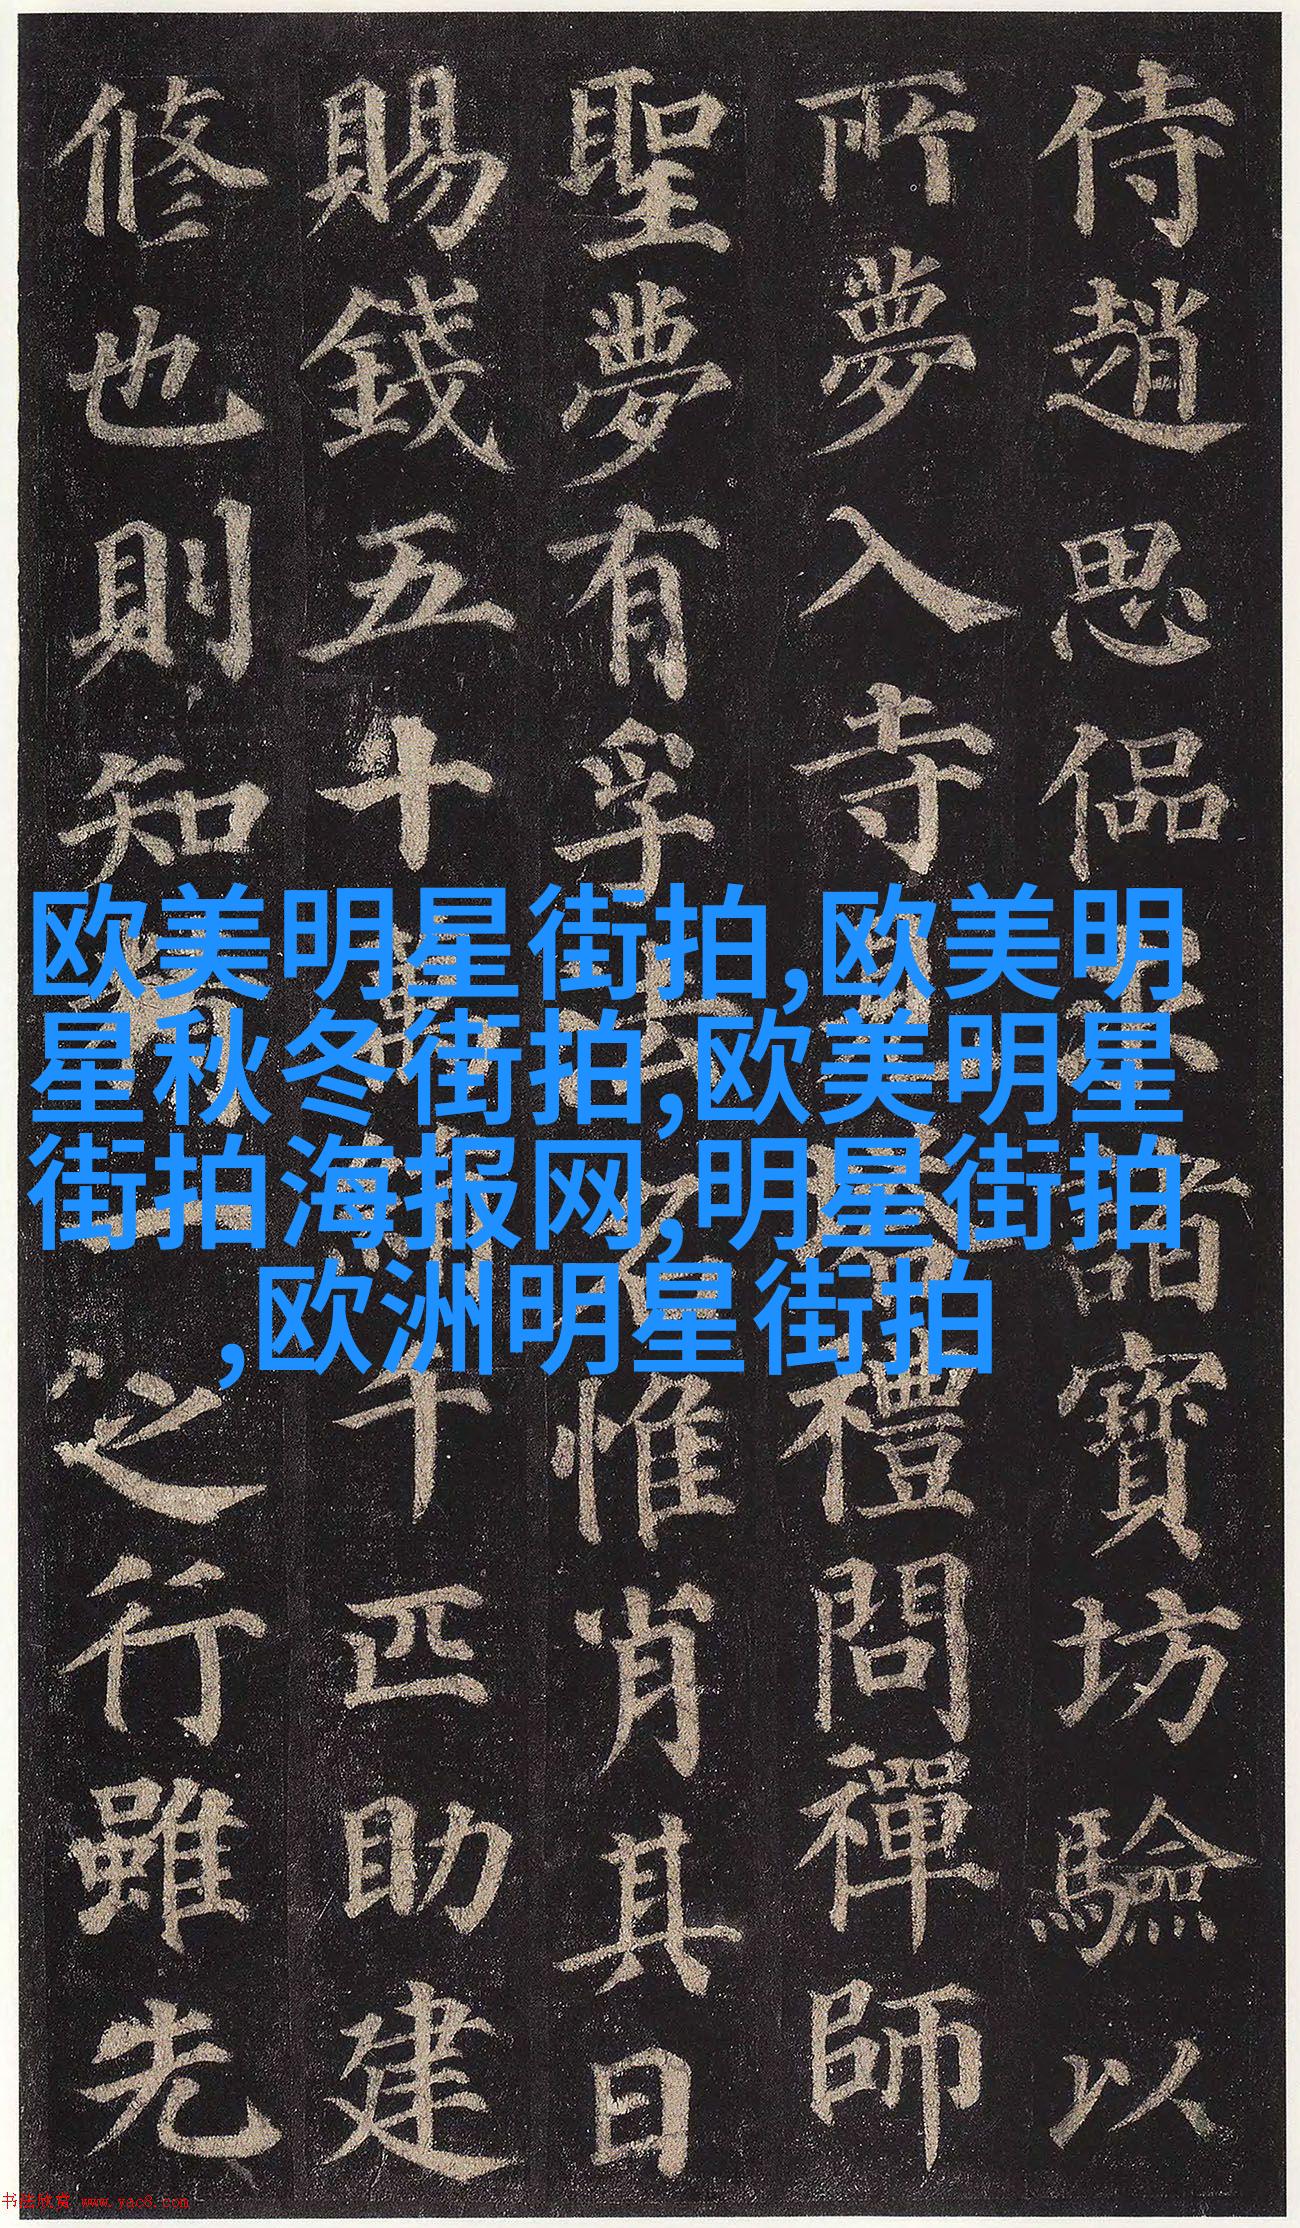 侍趙思偘諸寶坊驗以
所夢入寺禮問禪師
聖夢有孚名惟肖其日
賜錢五十千匹助建
修也則知之行雖先
欧美明星街拍,欧美明
星秋冬街拍,欧美明星
街拍海报网,明星街拍
,欧洲明星街拍
书法欣赏 www.yac8.com